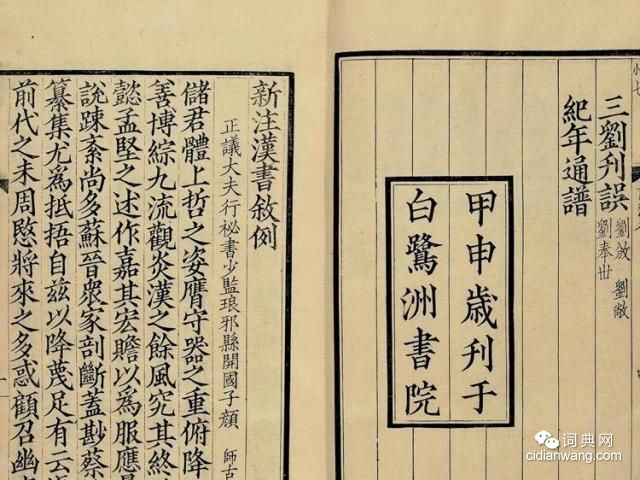 三劉刋誤
劉攽 劉敞
劉奉丗
紀年通譜
甲申歳刊于
白鷺洲書院
新注漢書敘例
正議大夫行祕書少監琅邪縣開國子顏 師古
儲君體上哲之姿膺守器之重俯降
善博綜九流觀炎漢之餘風究其終
懿孟堅之述作嘉其宏贍以爲服應
說踈紊尚多蘇晉衆家剖斷蓋尠蔡
纂集尤爲抵捂自兹以降蔑足有云
前代之未周愍將來之多惑顧召幽
词典网
cidianwang.com